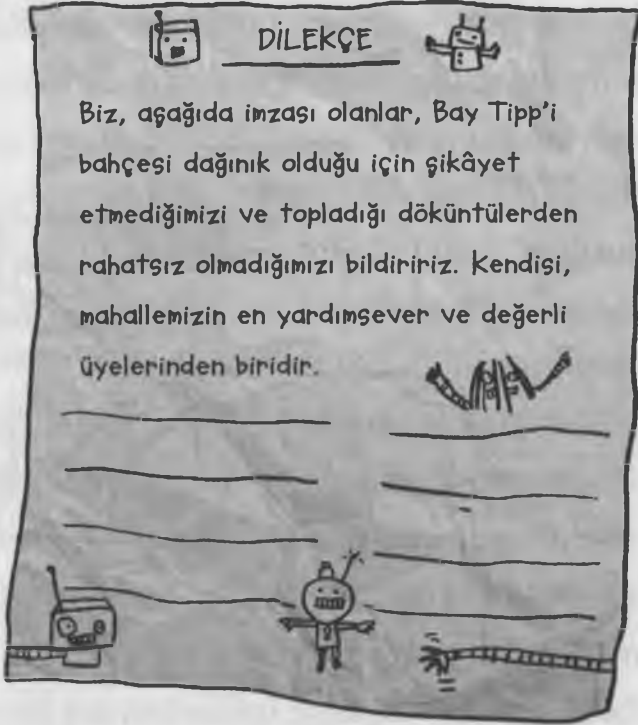 DİLEKÇE
Biz, aşağıda imzası olanlar, Bay Tipp'i
bahçesi dağınık olduğu için şikâyet
etmediğimizi ve topladığı döküntülerden
rahatsız olmadığımızı bildiririz. Kendisi,
mahallemizin en yardımsever ve değerli
üyelerinden biridir.